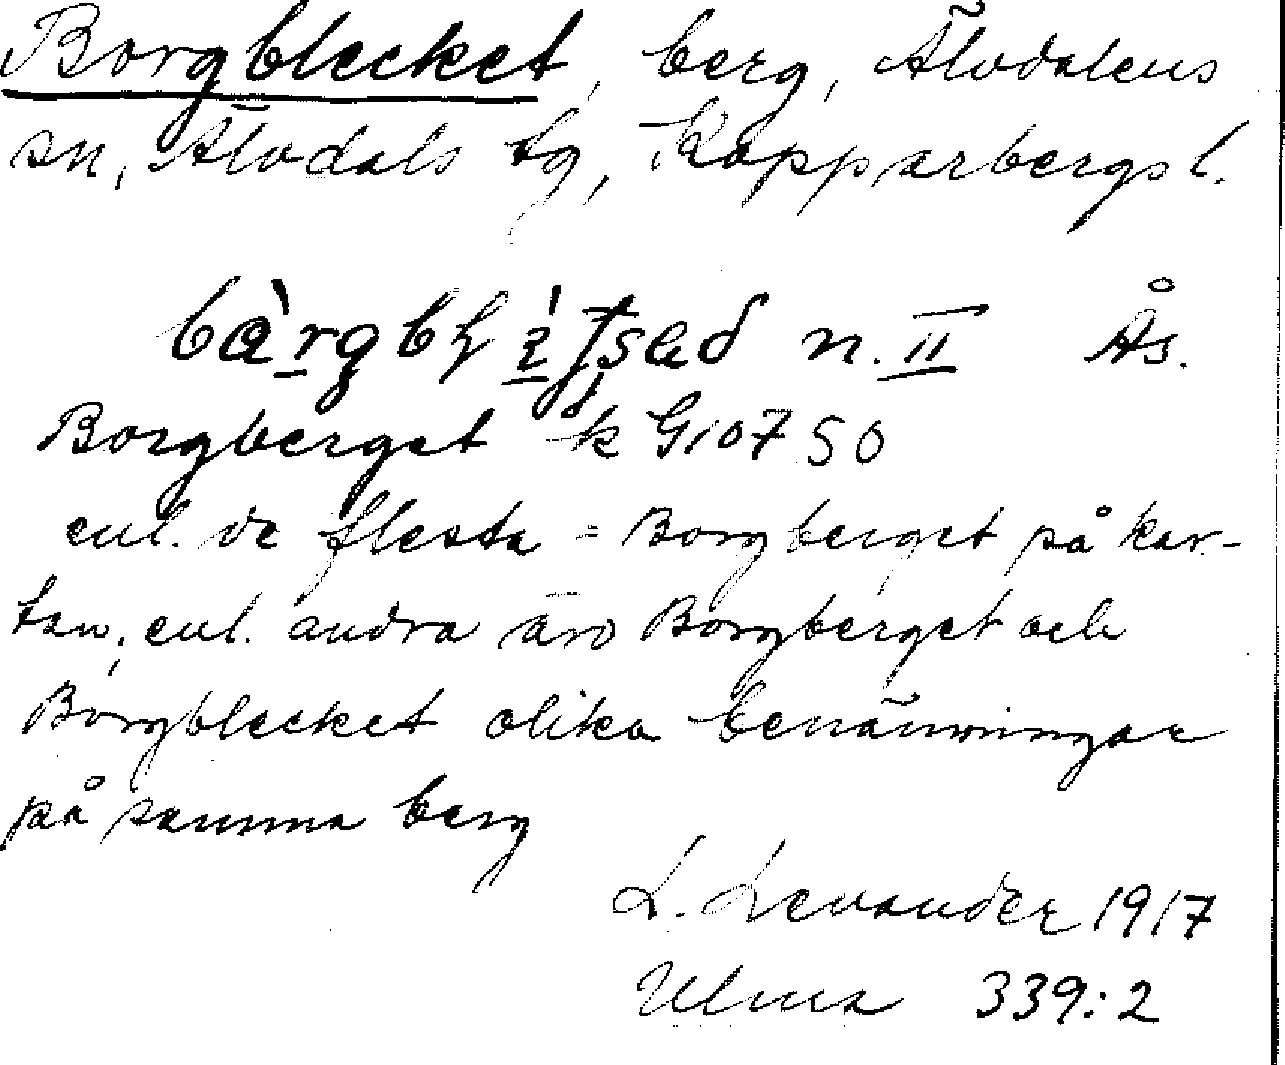 Borgblecket, berg, Älvdalens
sn, Älvdals tg, Kopparbergs l.
n. II Ås.
Borgberget k G10750
enl. de flesta = Borgberget på kar-
tan; enl. andra äro Borgberget och
Borgblecket olika benämningar
på samma berg
L. Levander 1917
Ulma 339:2